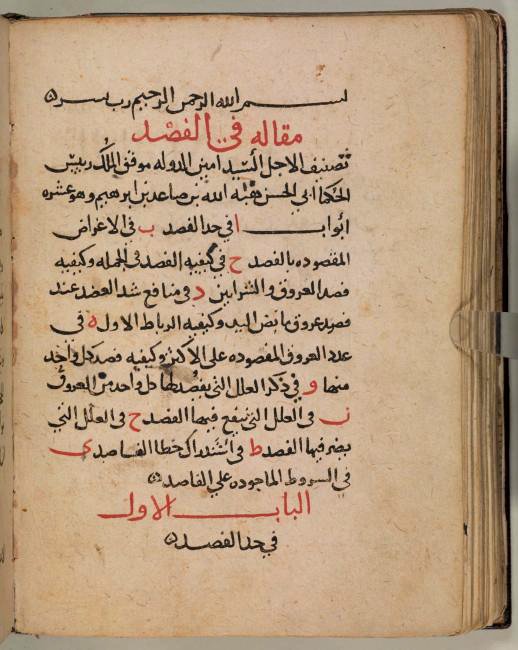 بسم الله الرحمن الرحيم رب يسر ه
مقاله في الفصد
تصنيف الاجل السيد امين الدوله موفق الملك رييس
الحكما ابي الحسن هبة الله بن صاعد بن ابرهيم وهو عشره
ابواب ا في حد الفصد ب في الاغراض
المقصوده بالفصد ح في كيفيه الفصد في الجمله وكيفيه
فصد العروق والشرايين د في منافع شد العضد عند
فصد عروق مابض اليد وكيفيه الرباط الاول ه في
عدد العروق المفصوده علي الاكثر وكيفيه فصد كل واحد
منها و في ذكر العلل التي يفصد لها كل واحد من العروق
ز في العلل التي ينفع فيها الفصد ح في العلل التي
يضر فيها الفصد ط في استدراك خطا الفاصد ي
في الشروط الماخوده علي الفاصد ه
الباب الاول
في حد الفصد ه